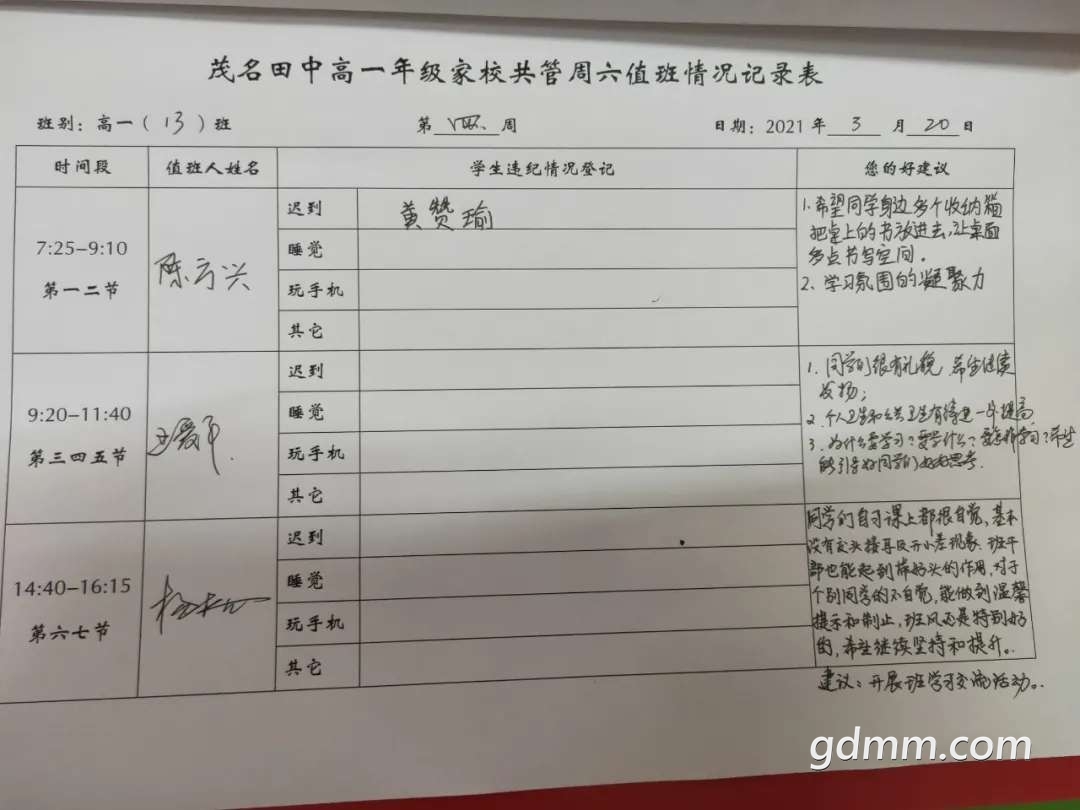 茂名田中高一年级家校共管周六值班情况记录表
班别：高一（13）班 第 四 周 日期：2021 年 3 月 20 日
时间段 值班人姓名 学生违纪情况登记 您的好建议
7:25-9:10
第一二节
迟到 黄赞瑜
睡觉
玩手机
其它
1.希望同学身边多个收纳箱
把桌上的书放进去,让桌面
多点书写空间。
2、学习氛围的凝聚力
9:20-11:40
第三四五节
迟到
睡觉
玩手机
其它
1. 同学们很有礼貌,希望继续
发扬;
2. 个人卫生和公共卫生有待进一步提高
3. 为什么要学习?要学什么?要怎样学习?希望
能引导好同学们好好思考.
14:40-16:15
第六七节
迟到
睡觉
玩手机
其它
同学们自习课上都很自觉,基本
没有交头接耳及开小差现象.班干
部也能起到带好头的作用,对于
个别同学的不自觉,能做到温馨
提示和制止,班风还是特别好
的,希望继续坚持和提升。
建议:开展班学习交流活动。
gdmm.com